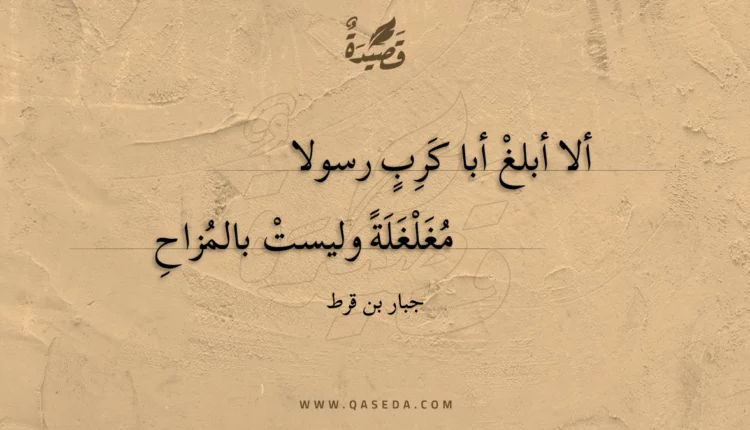 قَصِيْدَةٌ
ألا أبلغْ أبا كَرِبٍ رسولا
مُغَلْغَلَةً وليستْ بالمُزاحِ
جبار بن قرط
WWW.QASEDA.COM